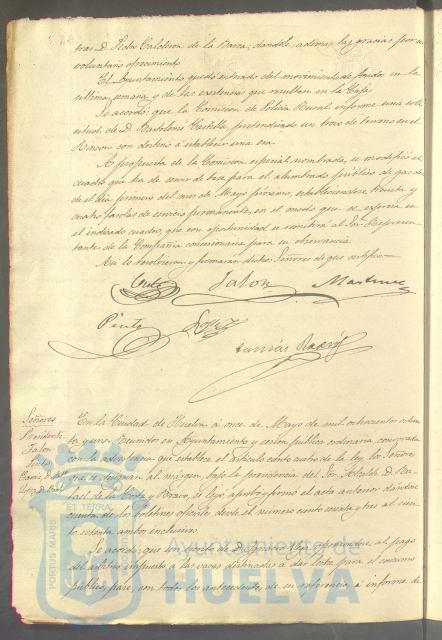 tras D. Pedro Calderon de la Barca, dandole, ademas las gracias por su
voluntario ofrecimiento
El Ayuntamiento quedó enterado del movimiento de fondos en la
última semana y de las existencias que resultan en la Caja
Se acordó: que la Comision de Policia Rural informe una soli
citud de D. Bartolomé Castilla, pretendiendo un trozo de terreno en el
con destino á establecer una era.
A propuesta de la Comision especial nombrada, se modificó el
cuadro que ha de servir de base para el alumbrado público de gas des
de el dia primero del mes de Mayo próximo, estableciendose treinta y
cuatro farolas de servicio permanente, en el modo que se expresa en
el indicado cuadro, que con oportunidad se remitirá al Sor. Represen
tante de la Compañia concesionaria para su observancia.
Asi lo resolvieron y firmarán dichos Señores de que certifico
Jalon Martinez
Pinto Lopez
Señores
Presidente
Jalon
Pinto
En la Ciudad de Huelva á once de Mayo de mil ochocientos ochen
ta y uno. Reunidos en Ayuntamiento y sesion publica ordinaria, convocada
con la advertencia que establece el articulo ciento cuatro de la ley los Señores
que se designan al márgen, bajo la presidencia del Sor. Alcalde D. Ra-
fael de la Corte y Bravo, se leyó aprobó y firmó el acta anterior dandose
cuenta de los boletines oficiales desde el numero ciento sesenta y tres al cien
to setenta ambos inclusive.
Se acordó que con respecto á D. Ygnacio
del arbitrio impuesto á las vacas destinadas á dar leche para el consumo
público, pase, con todos los antecedentes de su referencia, á informe de
PORTUS MARIS ET TERRAE
Ayuntamiento de
HUELVA